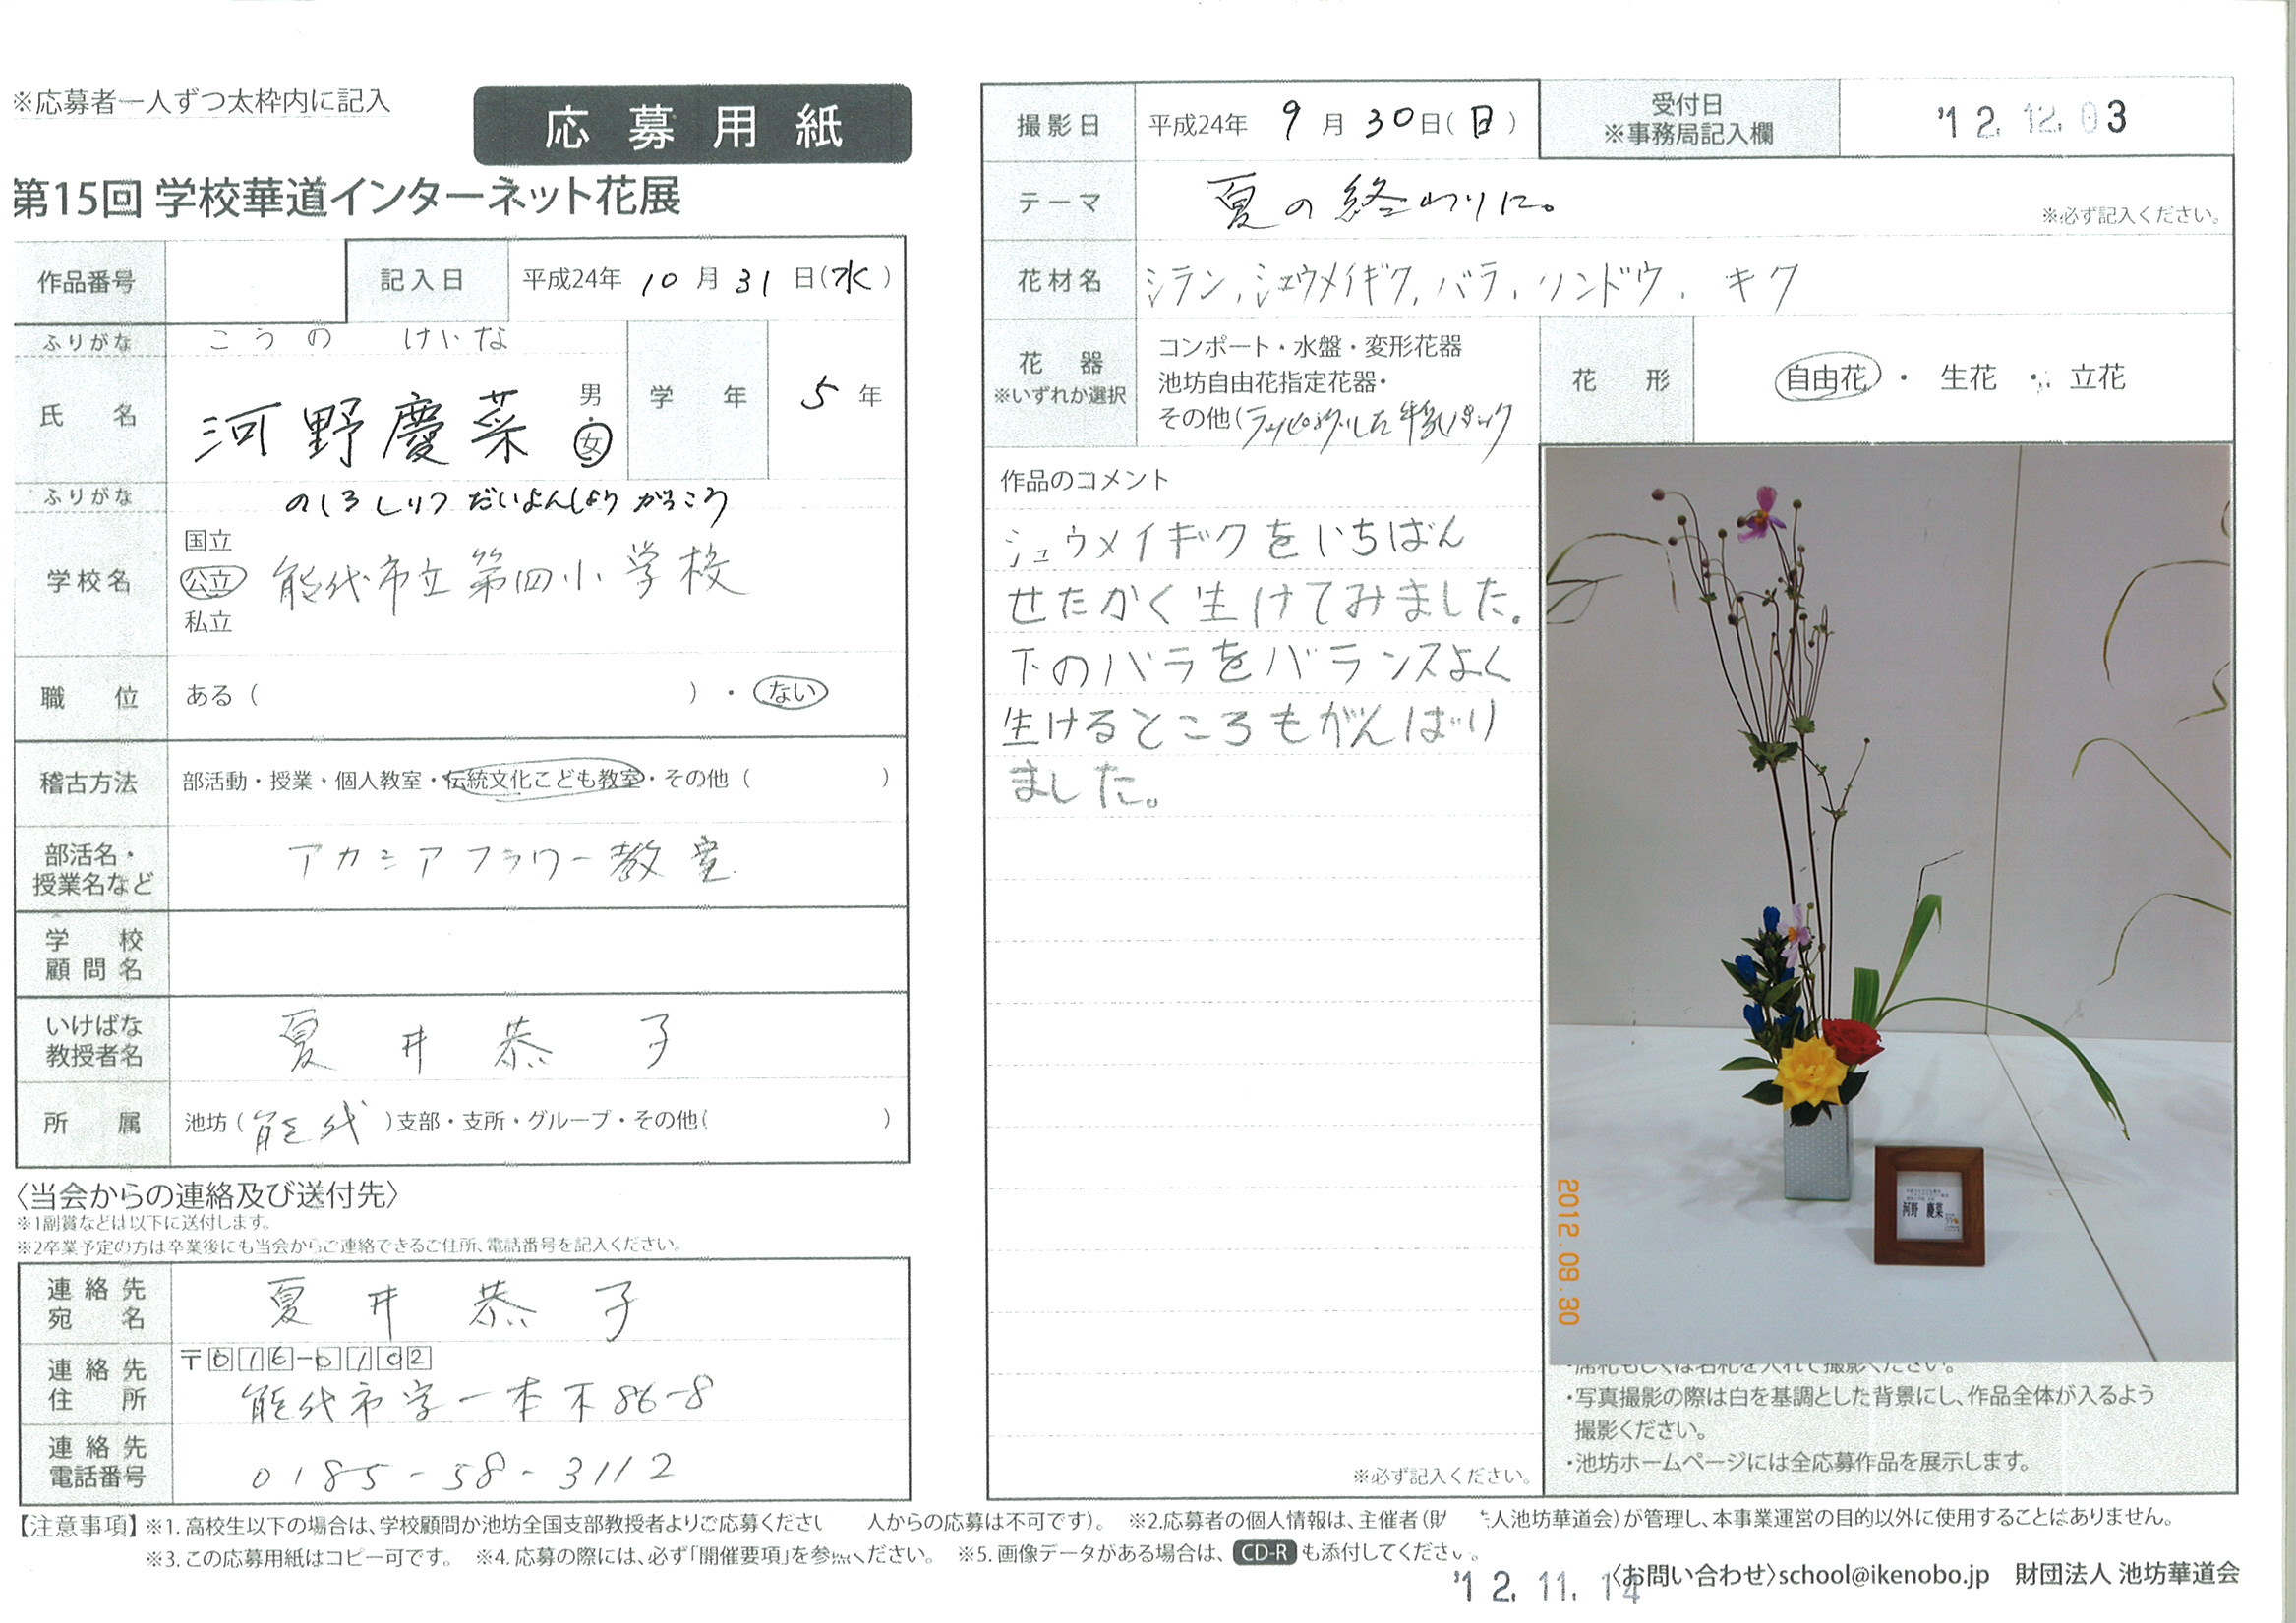 ※応募者一人ずつ太枠内に記入
応募用紙
第15回 学校華道インターネット花展
作品番号
記入日 平成24年 10月31日(水)
ふりがな こうの けいな
氏名 河野慶菜 男 女
学年 5年
ふりがな のしろしりつ だいよんしょうがっこう
学校名 国立 公立 私立 能代市立第四小学校
職位 ある( )・ない
稽古方法 部活動・授業・個人教室・伝統文化こども教室・その他( )
部活名・授業名など アカシアフラワー教室
学校顧問名
いけばな教授者名 夏井恭子
所属 池坊(能代)支部・支所・グループ・その他( )
〈当会からの連絡及び送付先〉
※1副賞などは以下に送付します。
※2卒業予定の方は卒業後にも当会からご連絡できるご住所、電話番号を記入ください。
連絡先宛名 夏井恭子
連絡先住所 〒016-0102
能代市字一本木86-8
連絡先電話番号 0185-58-3112
撮影日 平成24年 9月30日(日)
受付日 ※事務局記入欄 '12.12.03
テーマ 夏の終わりに。
※必ず記入ください。
花材名 シラン,シュウメイギク,バラ,リンドウ,キク
花器 ※いずれか選択
コンポート・水盤・変形花器
池坊自由花指定花器・
その他(ラッピングした牛乳パック
花形 自由花・生花・立花
作品のコメント
シュウメイギクをいちばん
せたかく生けてみました。
下のバラをバランスよく
生けるところもがんばり
ました。
※必ず記入ください。
河野 慶菜
2012.09.30
・席札もしくは名札を入れて撮影ください。
・写真撮影の際は白を基調とした背景にし、作品全体が入るよう
撮影ください。
・池坊ホームページには全応募作品を展示します。
【注意事項】※1.高校生以下の場合は、学校顧問か池坊全国支部教授者よりご応募くださ 人からの応募は不可です)。 ※2.応募者の個人情報は、主催者(財 人池坊華道会)が管理し、本事業運営の目的以外に使用することはありません。
※3.この応募用紙はコピー可です。 ※4.応募の際には、必ず「開催要項」を参照ください。 ※5.画像データがある場合は、CD-Rも添付してください。
'12.11.14
〈お問い合わせ〉school@ikenobo.jp 財団法人 池坊華道会